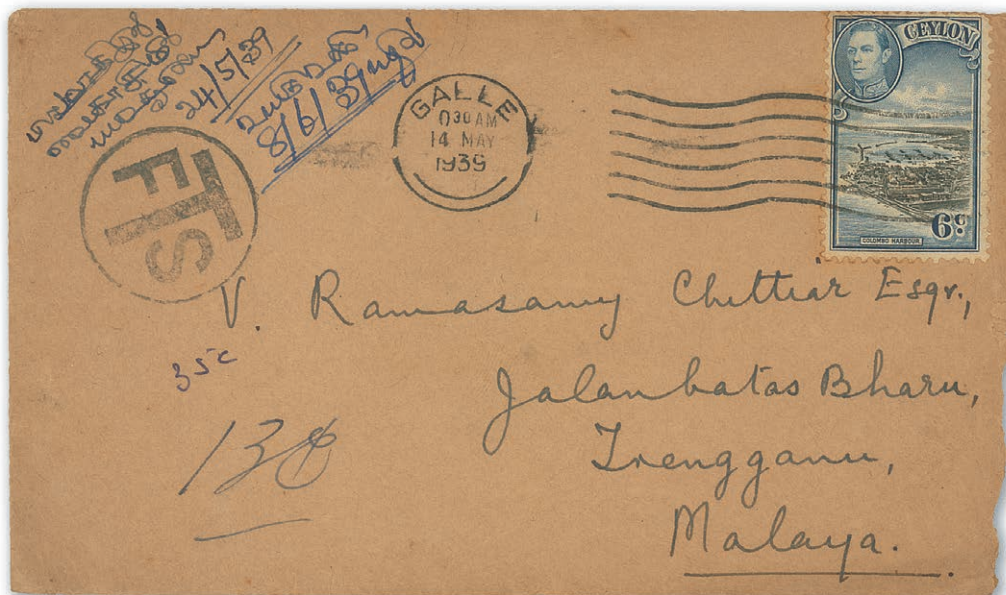 24/5/39
8/6/39
GALLE
0 30 AM
14 MAY
1939
CEYLON
6c
COLOMBO HARBOUR
T
FS
V. Ramasamy Chettiar Esqr.,
35c
Jalanbatas Bharu,
138
Trengganu,
Malaya.